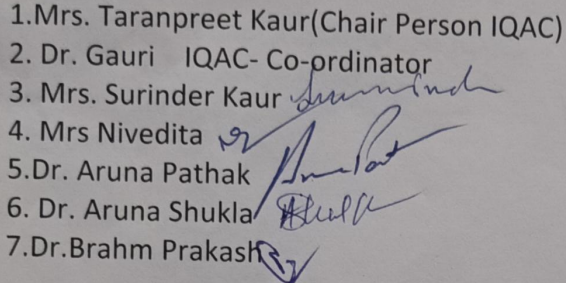 1.Mrs. Taranpreet Kaur(Chair Person IQAC)
2. Dr. Gauri   IQAC- Co-ordinator
3. Mrs. Surinder Kaur
4. Mrs Nivedita
5.Dr. Aruna Pathak
6. Dr. Aruna Shukla
7.Dr.Brahm Prakash